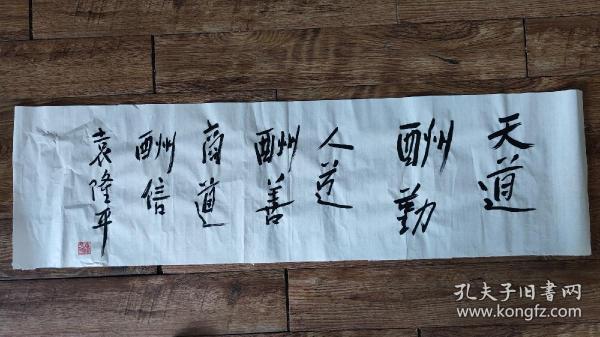 天道
酬勤
人道
酬善
商道
酬信
袁隆平
孔夫子旧書网
www.kongfz.com